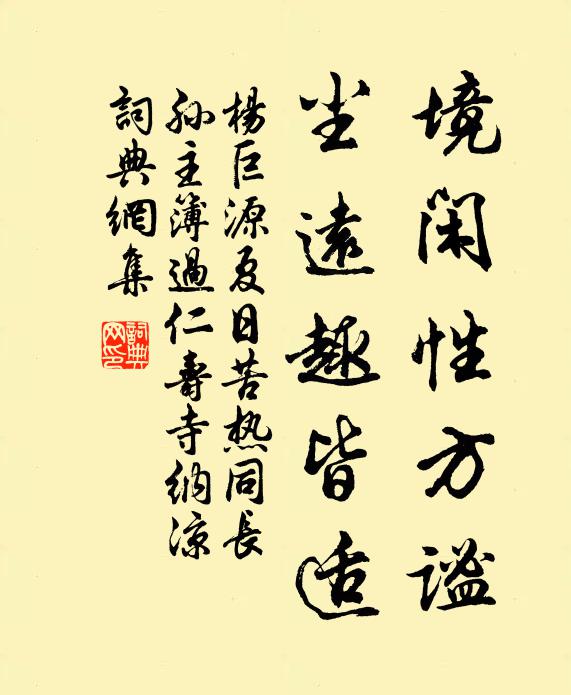 境閑性方謐
尘遠趣皆适
楊巨源夏日苦热同長
孙主簿過仁壽寺納凉
詞典網集
詞典網印